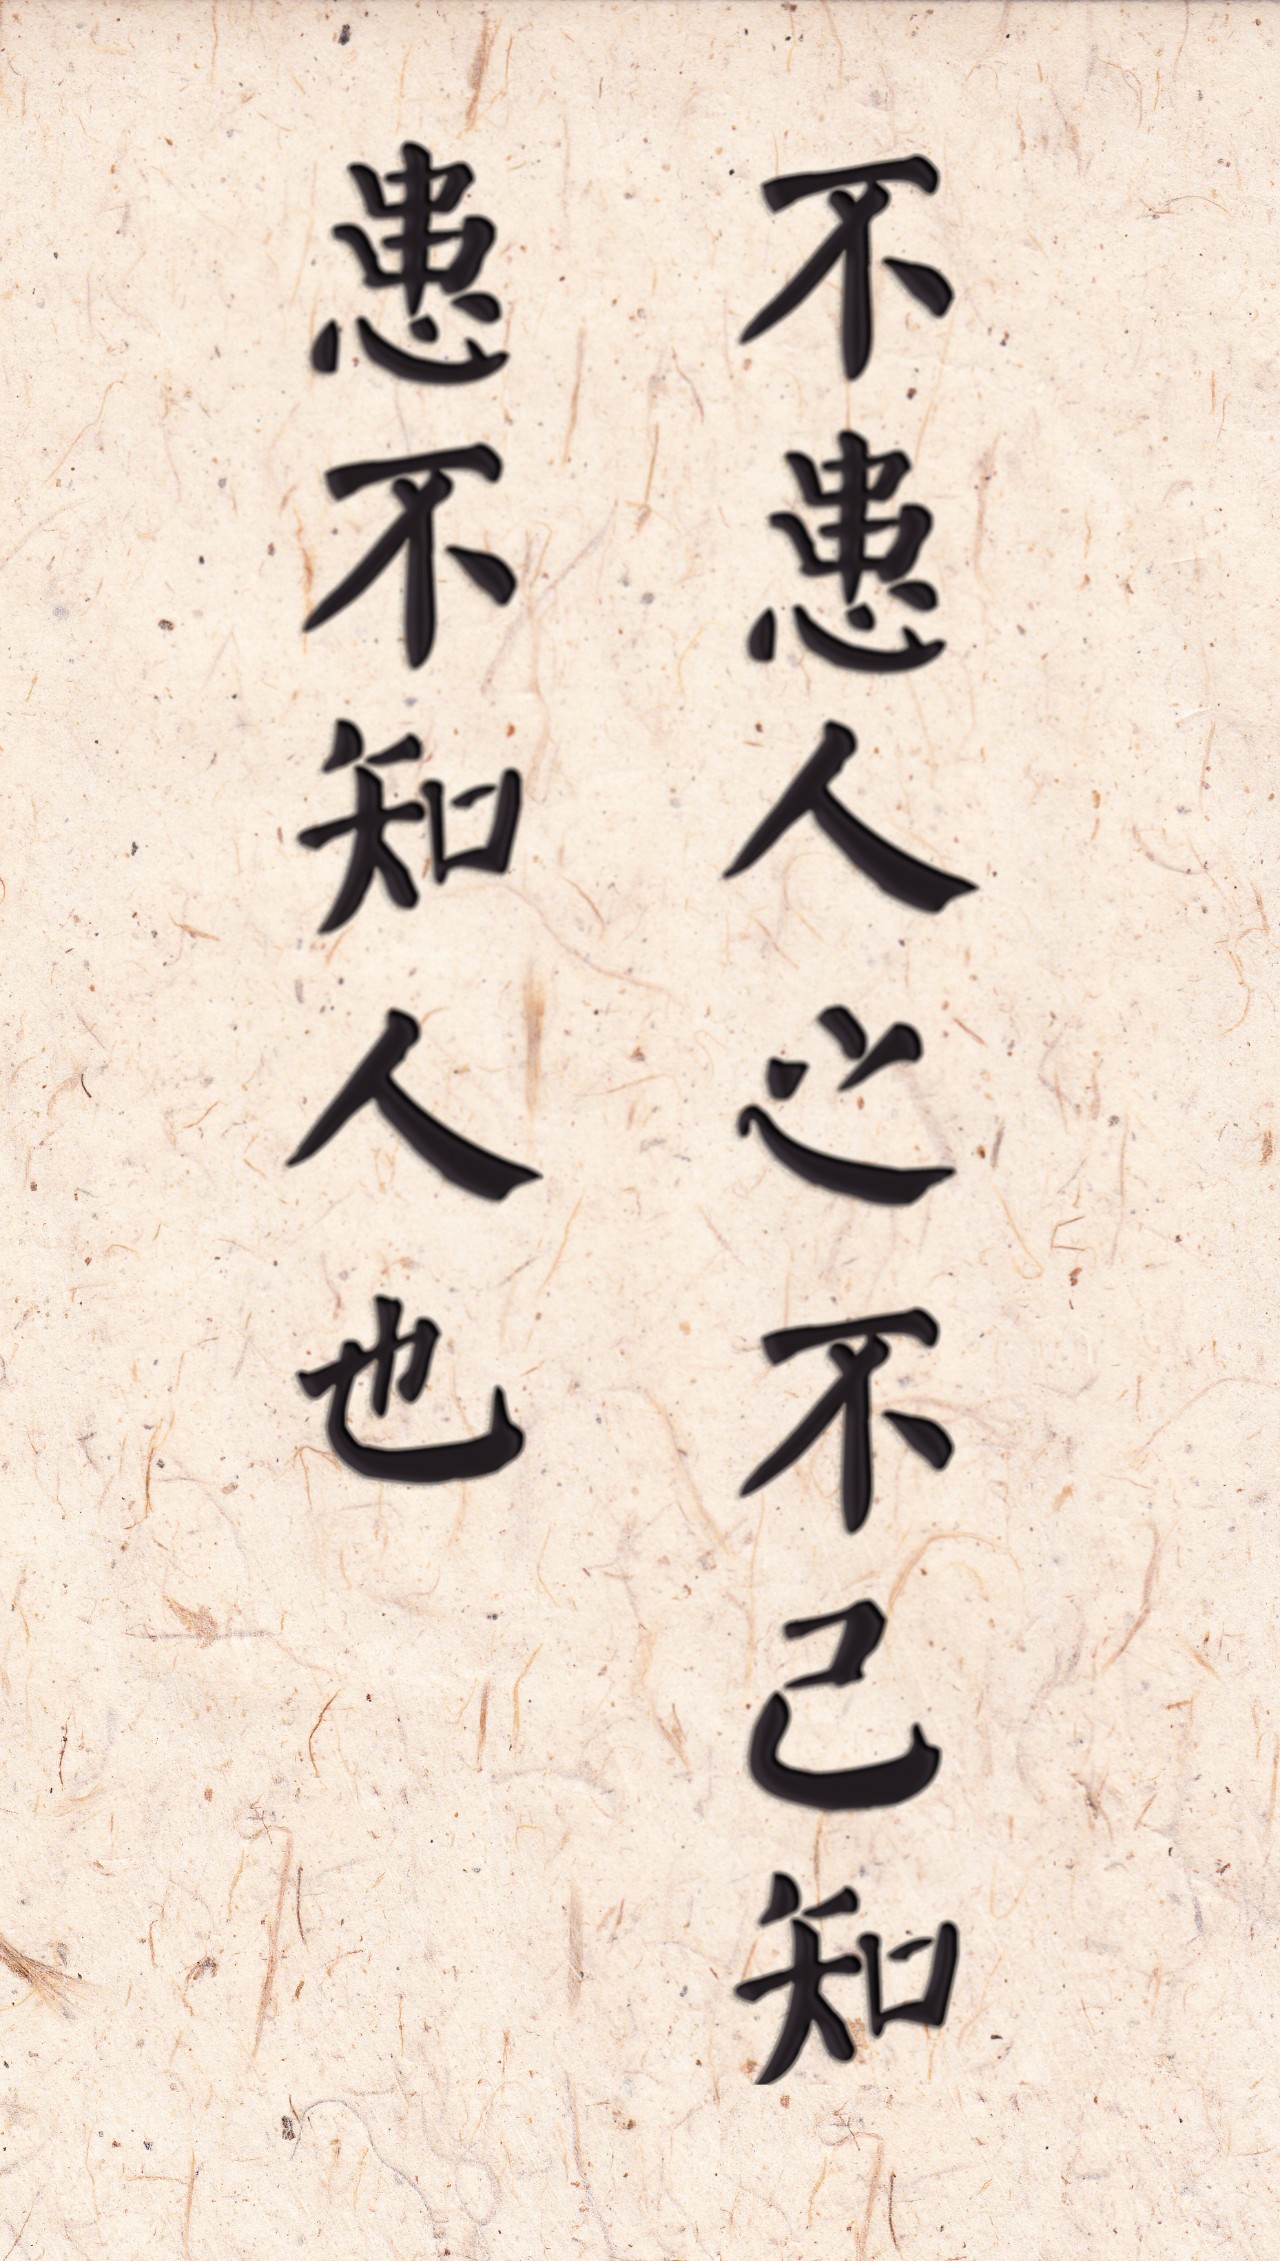 不患人之不己知
患不知人也